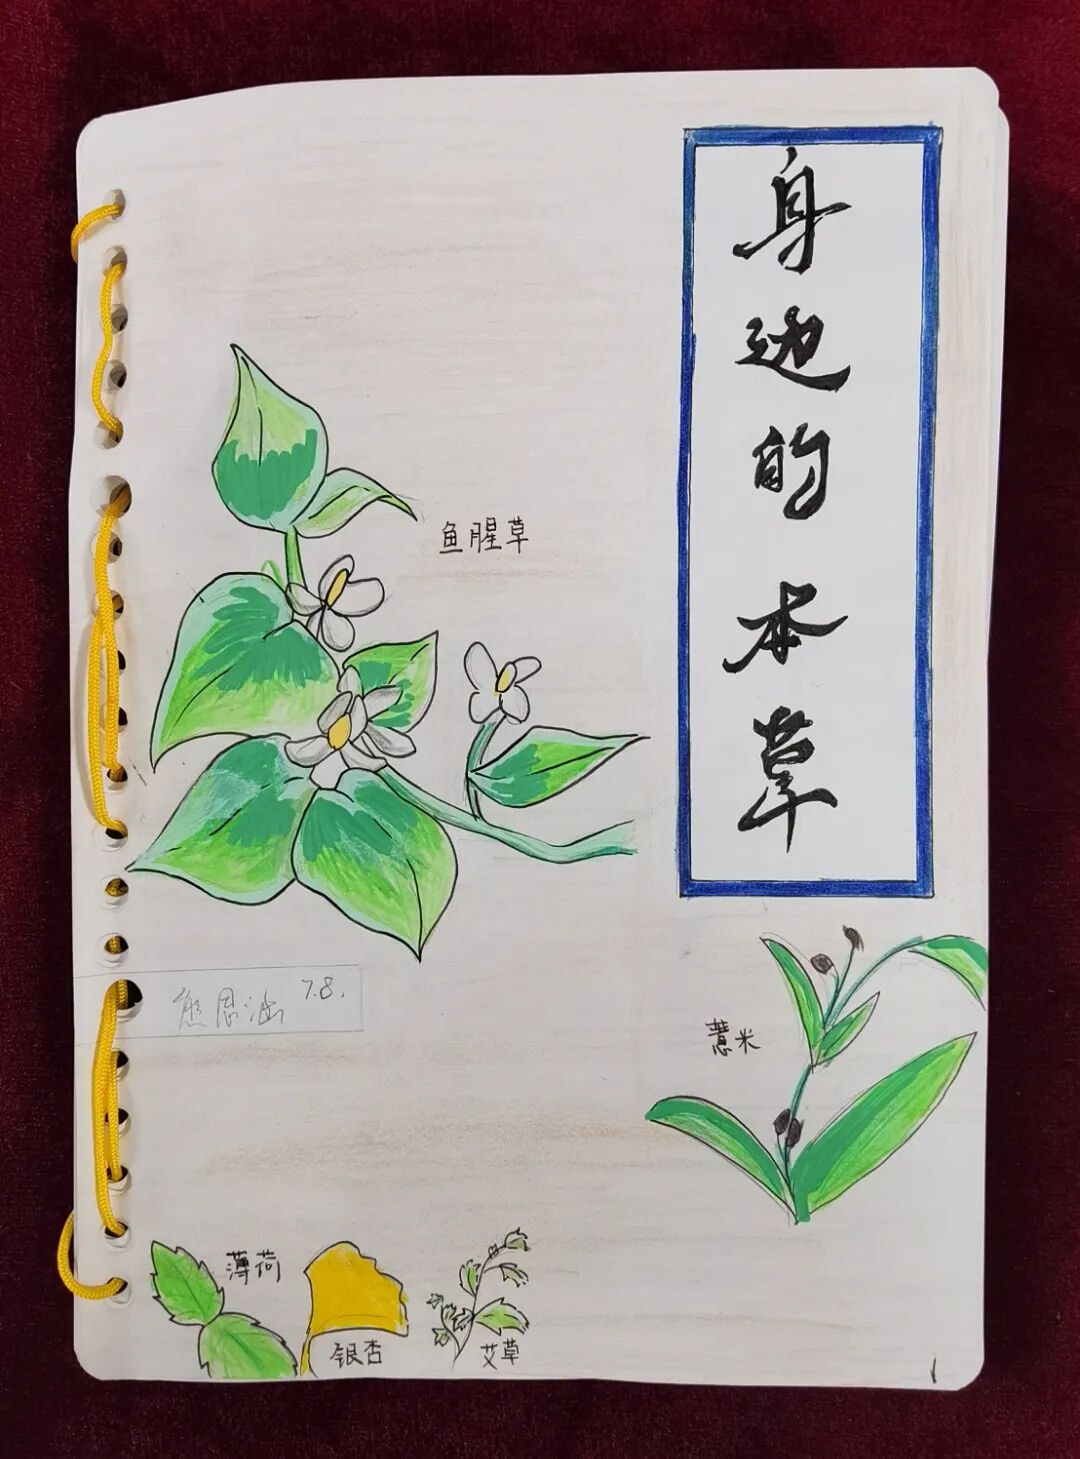 身边的本草
鱼腥草
熊恩涵 7.8.
薏米
薄荷
银杏
艾草
1